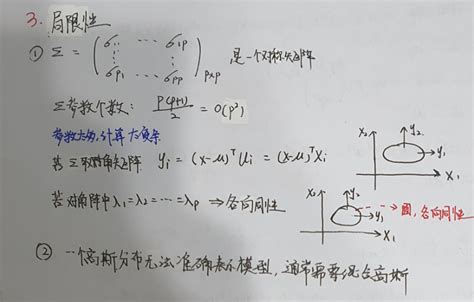 3. 局限性
① Σ = (σ11 ⋯ σ1p ⋮ ⋮ σp1 ⋯ σpp)p×p 是一个对称矩阵
Σ参数个数: p(p+1)/2 = O(p²)
参数太多, 计算太复杂
若Σ为对角矩阵 yi = (x-μ)ᵀui = (x-μ)ᵀxi
x2 y2 y1 x1
若对角阵中λ1=λ2=⋯=λp ⇒ 各向同性
x2 y2 y1 x1 → 圆, 各向同性
② 一个高斯分布无法准确表示模型, 通常需要混合高斯